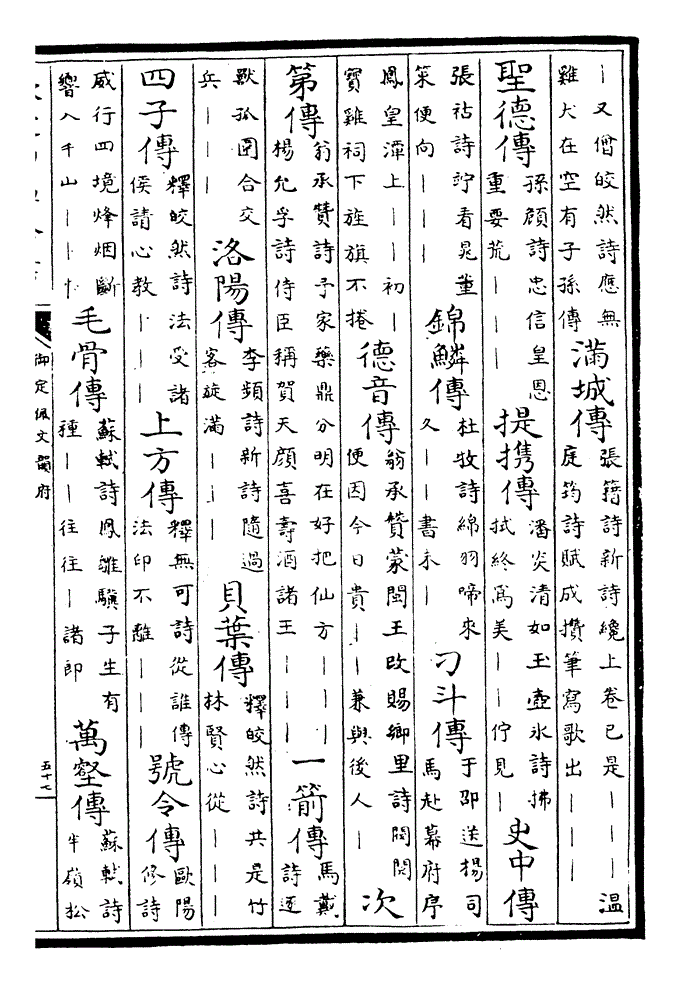 —又僧皎然詩應無
雞犬在空有子孫傳
滿城傳
張籍詩新詩纔上卷已是———溫
庭筠詩賦成攢筆寫歌出———
聖德傳
孫頎詩忠信皇恩
重要荒———
提携傳
潘炎清如玉壺冰詩拂
拭終爲美——佇見—
史中傳
張祜詩竚看晁董
策便向———
錦鱗傳
杜牧詩綿羽啼來
久——書未—
刁斗傳
于邵送楊司
馬赴幕府序
鳳皇潭上——初—
寶雞祠下旌旗不捲
德音傳
翁承贊蒙閩王改賜鄉里詩閥閱
便因今日貴——兼與後人—
次
第傳
翁承贊詩予家藥鼎分明在好把仙方———
楊允孚詩侍臣稱賀天顔喜壽酒諸王———
一箭傳
馬戴
詩逐
獸孤圍合交
兵———
洛陽傳
李頻詩新詩隨過
客旋滿———
貝葉傳
釋皎然詩共是竹
林賢心從———
四子傳
釋皎然詩法受諸
侯請心教———
上方傳
釋無可詩從誰傳
法印不離———
號令傳
歐陽
修詩
威行四境烽烟斷
響入千山———
毛骨傳
蘇軾詩鳳雛驥子生有
種——往往—諸郎
萬壑傳
蘇軾詩
半嶺松
御定佩文韻府
五十七